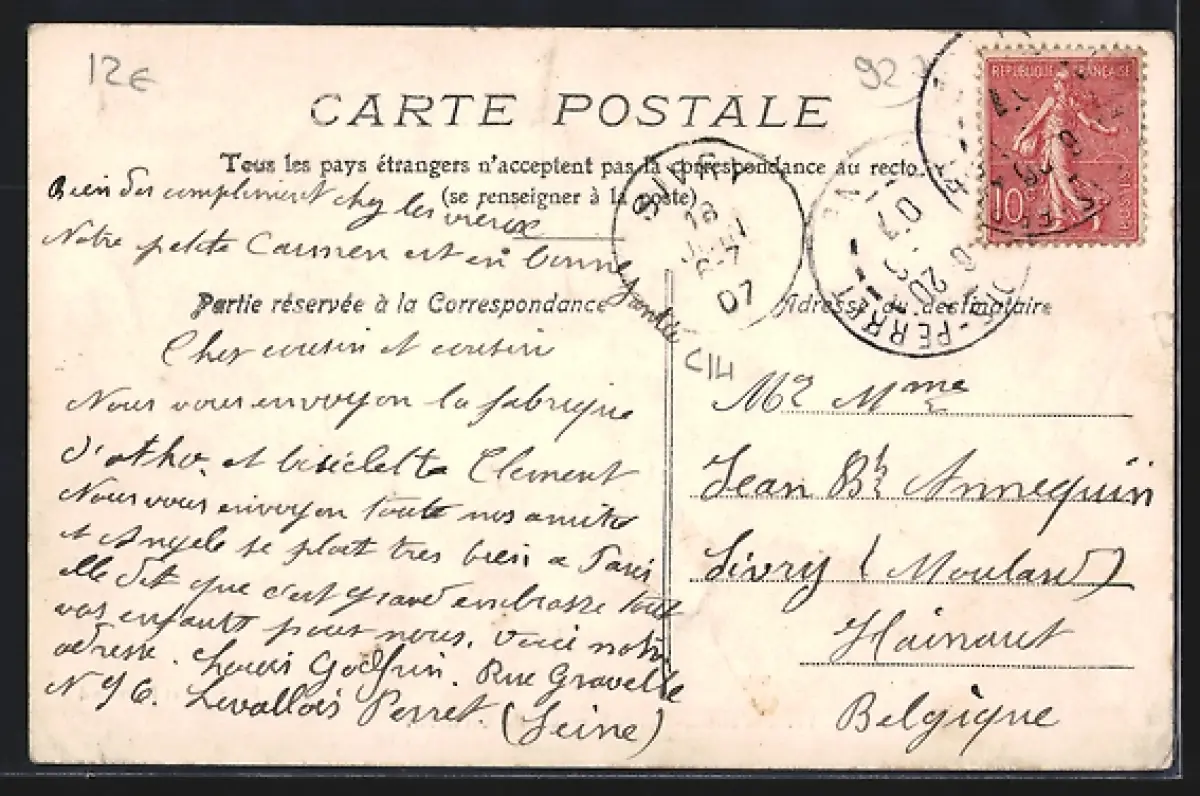 12€
92
CARTE POSTALE
Tous les pays étrangers n'acceptent pas la correspondance au recto.
(se renseigner à la poste)
RÉPUBLIQUE FRANÇAISE
10
POSTES
SIVRY
18
6-7
07
PERRET
20
07
Bien des compliment chez les vieux
Notre petite Carmen est en bonne
santée
Partie réservée à la Correspondance
Adresse du destinataire
C14
Cher cousin et cousin
Nous vous envoyon la fabrique
d'otho. et bisiclette Clement
Nous vous envoyon toute nos amités
et Angele se plait tres bien a Paris
elle dit que c'est grand embrasse tout
vos enfants pour nous. Voici notre
adresse. Louis Godfrin. Rue Gravelle
N 16. Levallois Perret. (Seine)
Mr Mme
Jean Bte Annequin
Sivry (Moulard)
Hainaut
Belgique